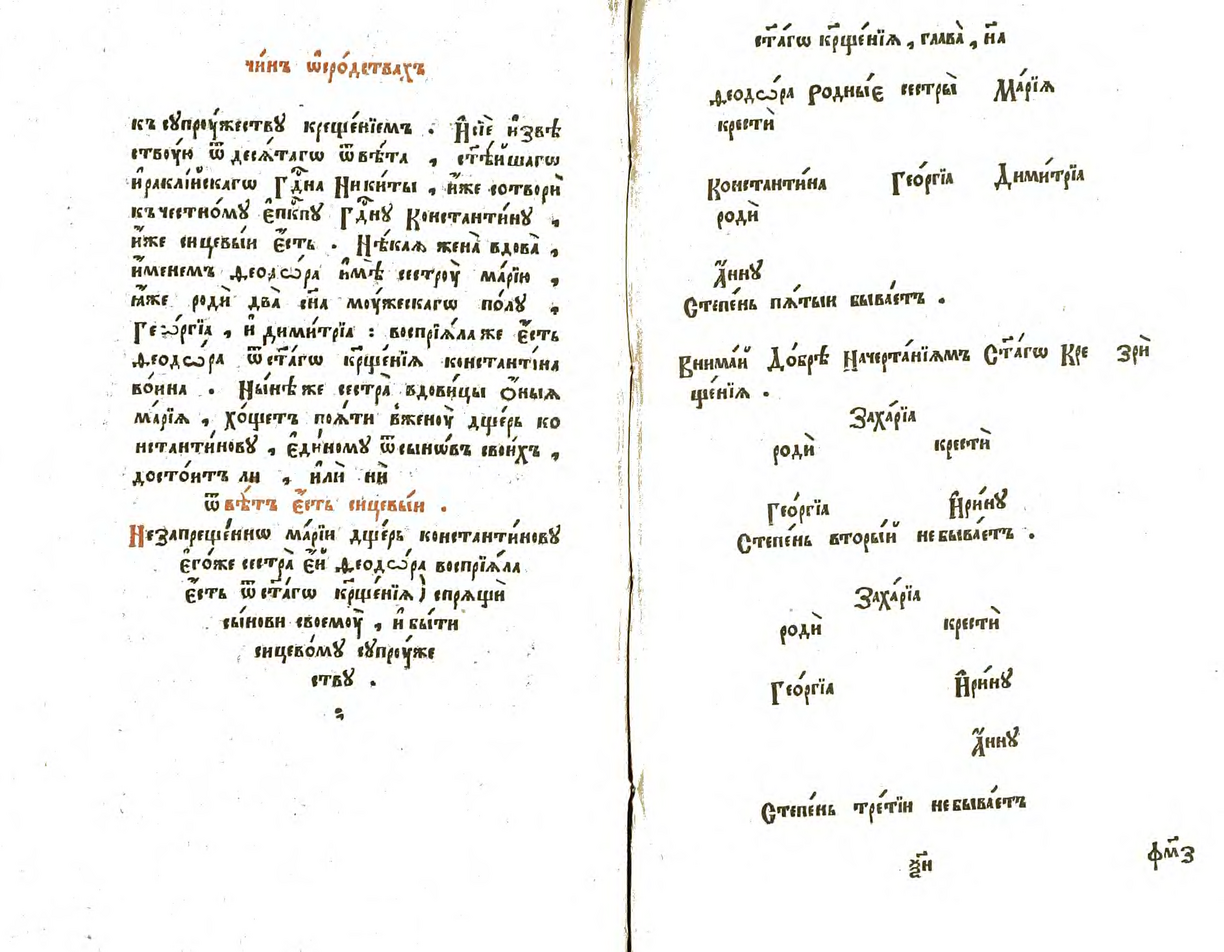 чи́нъ ѡ҆сро́дствахъ
къ сꙋпрꙋ́жествꙋ креще́нїемъ . И҆ сїѐ и҆звѣ
ствꙋ́ю ѿ деся́тагѡ ѿвѣ́та , ст҃ѣ́йшагѡ
и҆ракли́йскагѡ Гд҇и́на Ники́ты , и҆́же сотворѝ
къ че́стномꙋ Е҆пкⷭ҇пꙋ Гд҇и́нꙋ Константи́нꙋ ,
и҆́же сицевы́и є҆́сть . Нѣ́каѧ жена̀ вдова̀ ,
и҆́менемъ Ѳеодѡ́ра и҆мѣ̀ сестрꙋ̀ марі́ю ,
ꙗ҆́же родѝ два̀ сн҃а мꙋ́жескагѡ по́лꙋ ,
Гео́ргїа , и҆ дими́трїа : воспрїѧ́ла же є҆́сть
Ѳеодѡ́ра ѿ ст҃а́гѡ кр҃ще́нїѧ константи́на
во́ина . Ны́нѣ же сестра̀ вдови́цы ѻ҆́ныѧ
марі́ѧ , хо́щетъ поѧ́ти в̾женꙋ̀ дще́рь ко
нстанти́новꙋ , є҆ди́номꙋ ѿ сынѡ́въ свои́хъ ,
досто́итъ ли , и҆лѝ нѝ
ѿвѣ́тъ є҆́сть сицевы́и .
Незапреще́ннѡ марі́и дще́рь константи́новꙋ
є҆го́же сестра̀ є҆ѧ̀ Ѳеодѡ́ра воспрїѧ́ла
є҆́сть ѿ ст҃а́гѡ кр҃ще́нїѧ ) спрѧщѝ
сы́нови своемꙋ̀ , и҆ бы́ти
сицево́мꙋ сꙋпрꙋ́же
ствꙋ .
ст҃а́гѡ кр҃ще́нїѧ , глава̀ , н҃а
Ѳеодѡ́ра Родны́є сестры̀ Марі́ѧ
крестѝ
Константи́на Гео́ргїа Дими́трїа
родѝ
А҆́ннꙋ
Степе́нь пѧ́тыи быва́етъ .
Внима́й До́брѣ Начерта́нїѧмъ Ст҃а́гѡ Кре Зрѝ
ще́нїѧ .
Заха́рїа
родѝ крестѝ
Гео́ргїа И҆ри́нꙋ
Степе́нь вторы́й не быва́етъ .
Заха́рїа
родѝ крестѝ
Гео́ргїа И҆ри́нꙋ
А҆́ннꙋ
Степе́нь тре́тїи не быва́етъ
фм҃з